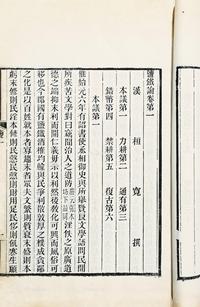 鹽鐵論卷第一
漢 桓 寬 撰
本議第一 力耕第二 通有第三
錯幣第四 禁耕第五 復古第六
本議第一
惟始元六年有詔書使丞相御史與所舉賢良文學語問民間
所疾苦文學對曰竊聞治人之道防淫佚之原廣道
德之端抑末利而開仁義毋示以利然後教化可興而風俗可
移也今郡國有鹽鐵酒榷均輸與民爭利散敦厚之樸成貪鄙
之化是以百姓就本者寡趨末者眾夫文繁則質衰末盛則本
虧末修則民淫本修則民愨民愨則財用足民侈則飢寒生願